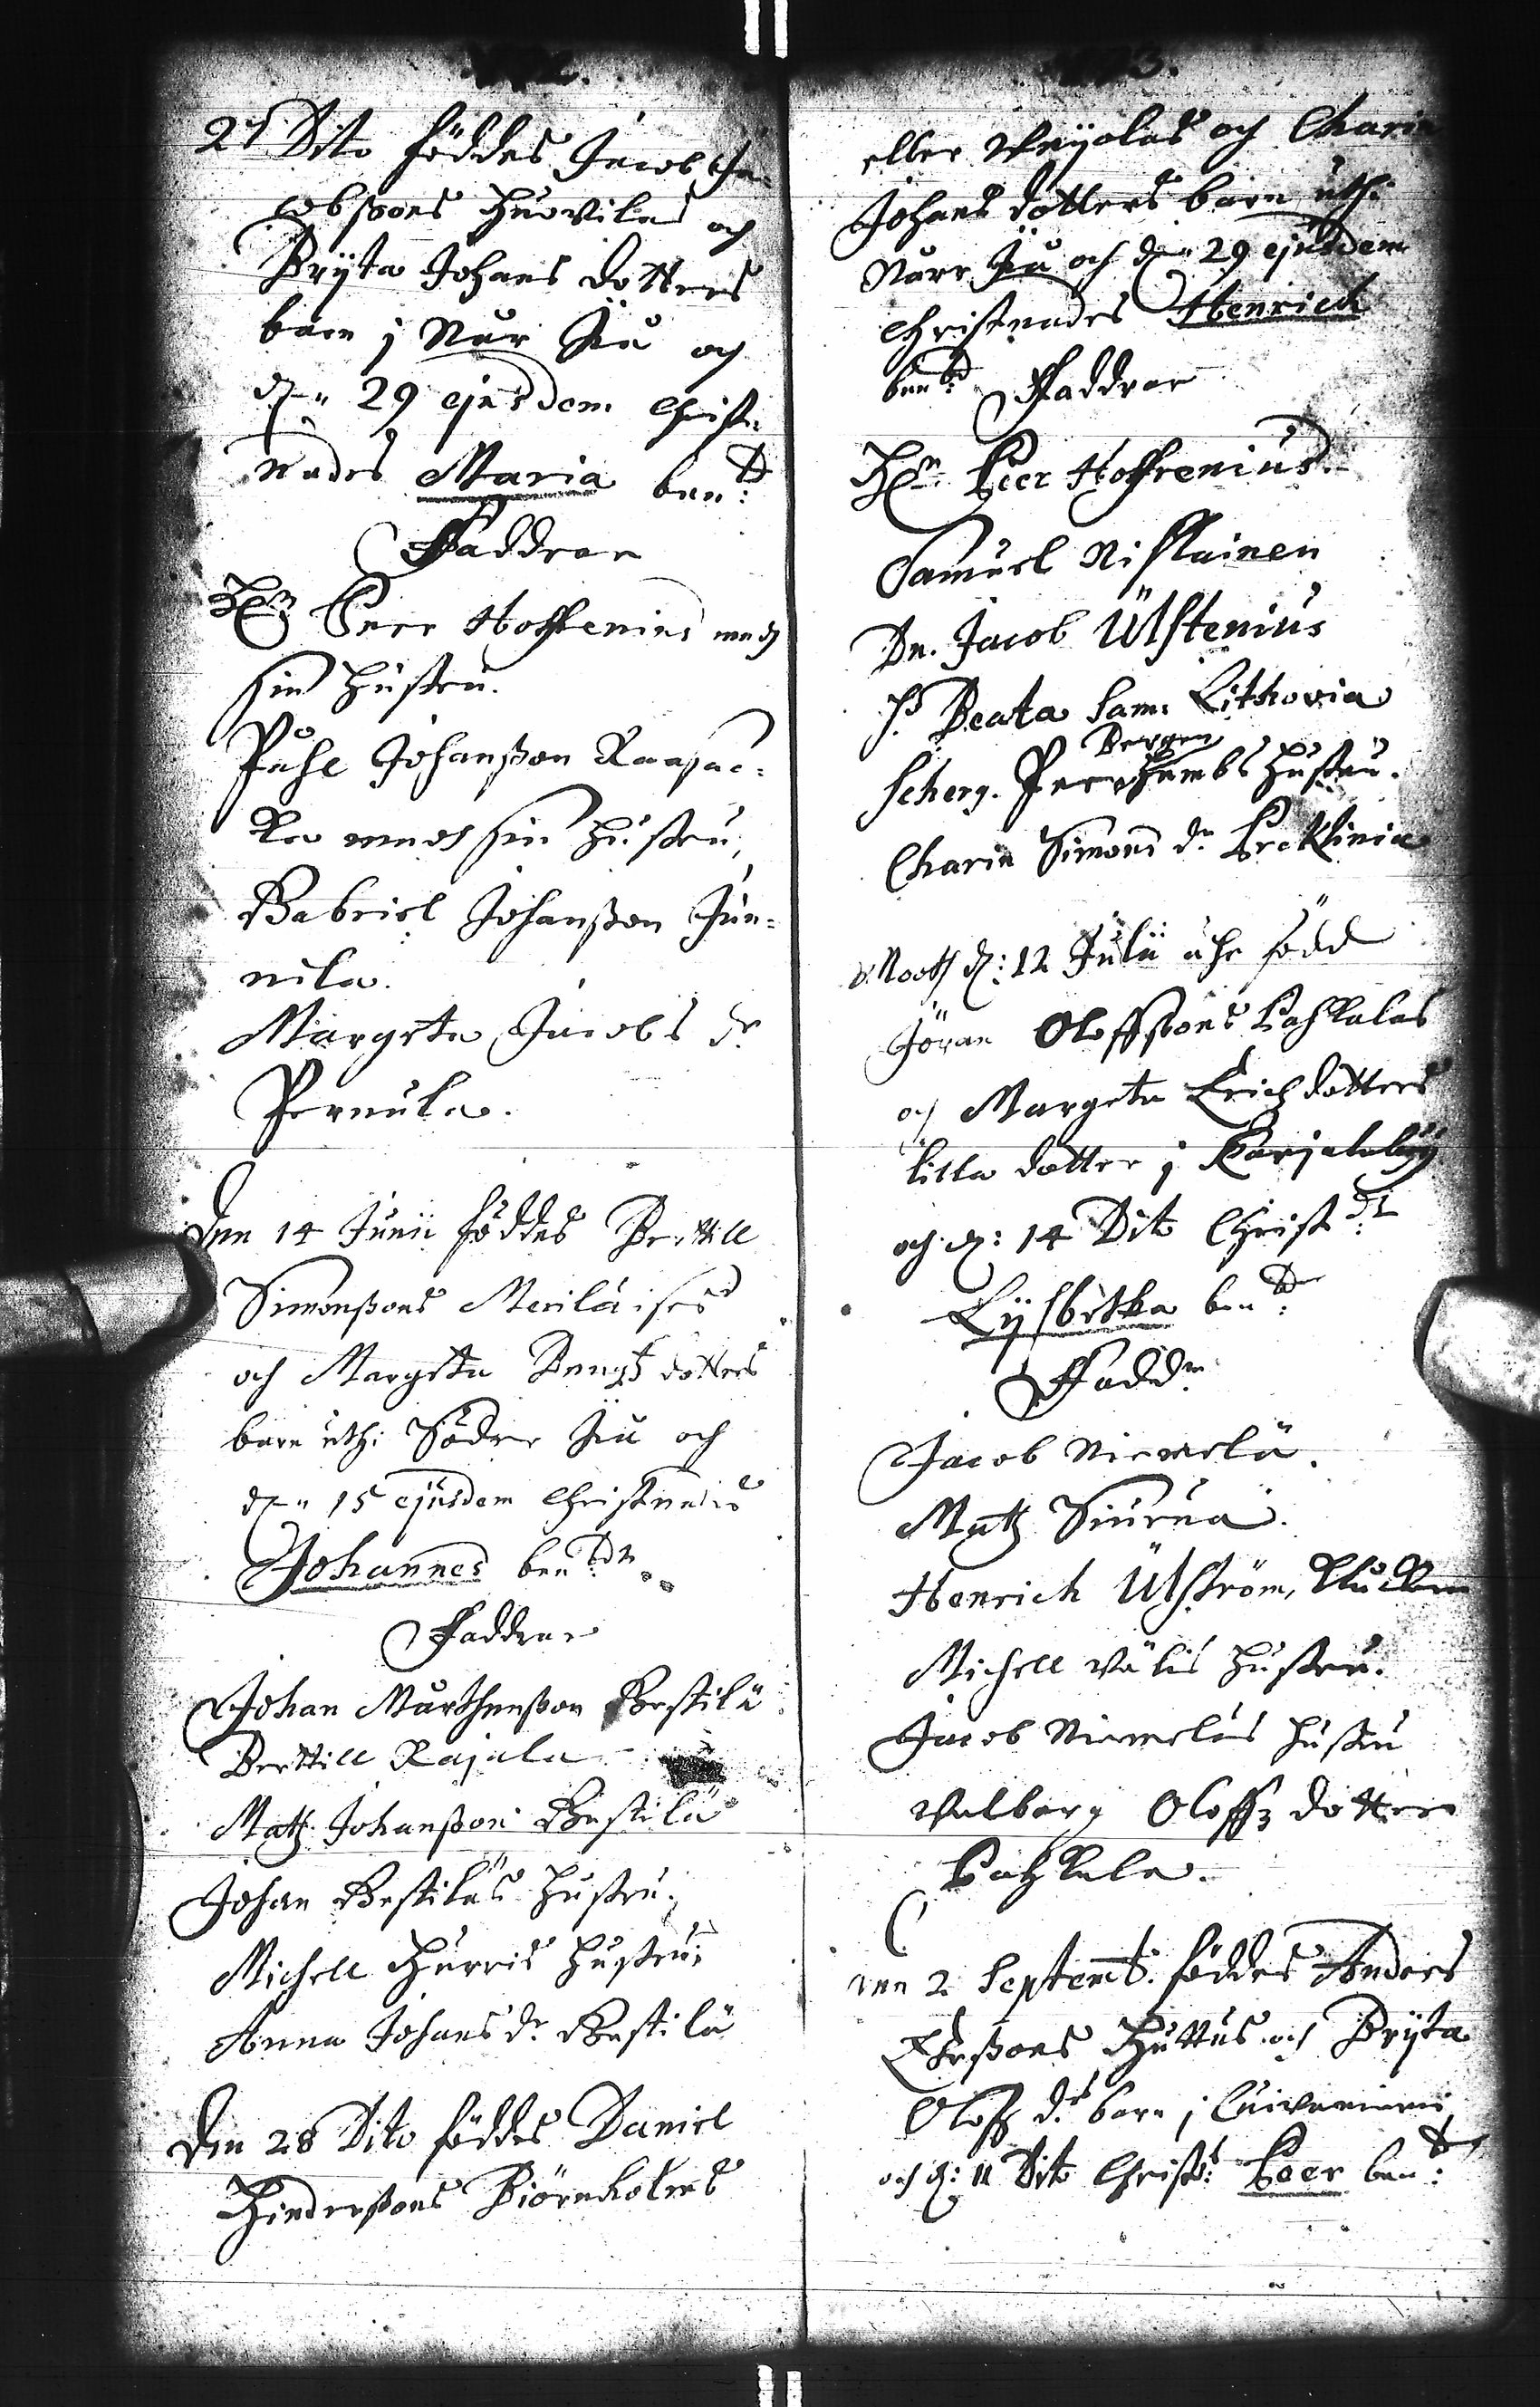 21 Dito föddes Jacob Ja-
cobßons Huovilas och
Bryta Johans dotters
barn j Nör Jiu och
dn 29 ejusdem Christ-
nades Maria ben:d
Faddrar
Hr Peer Hoffrenius medh
sin Hustru.
Påhl Johanßon Raasac-
ka medh sin Hustru,
Gabriel Johanßon Jun-
nila.
Margeta Jacobs dr
Pernula.
Den 14 Junii föddes Berttill
Simonßons Meriläises
och Margeta Bengtz dotters
barn uthi Södre Jiu och
dn 15 ejusdem Christnades
Johannes ben:dn
Faddrar
Johan Marthenßon Bestilä
Berttill Rajala
Matz Johanßon Bestilä
Johan Bestiläs Hustru,
Michell Hurris Hustru,
Anna Johans dr Bestilä
Den 28 Dito föddes Daniel
Hinderßons Biörnholms
eller och Charin
Johans dotters barn uthi
Norr Jiu och dn 29 ejusdem
christnades Henrich
ben:d Faddrar
Hr Peer Hoffrenius
Samuel Niskainen
Dn. Jacob Ulstenius
H. Beata Sam. Lithovia
Bergen
Scherg. Hustru.
Charin Simons dr
Nooth d: 12 Julii ähr född
Jöran Oloffßons Pahkalas
och Margeta Erichz dotters
lilla dotter j Karjalaby
och d: 14 Dito Christ:dt
Lysbetha ben:d
Faddr
Jacob Niemelä.
Matz Siurua.
Henrich Ulström,
Michell Välis Hustru.
Jacob Niemeläs Hustru
Valborg Oloffz dotter
Pahkala.
Den 2 Septemb. föddes Anders
Huttus och Bryta
Oloffz ds barn j Cuivaniemi
och d: 11 Dito Christ: Peer ben:d